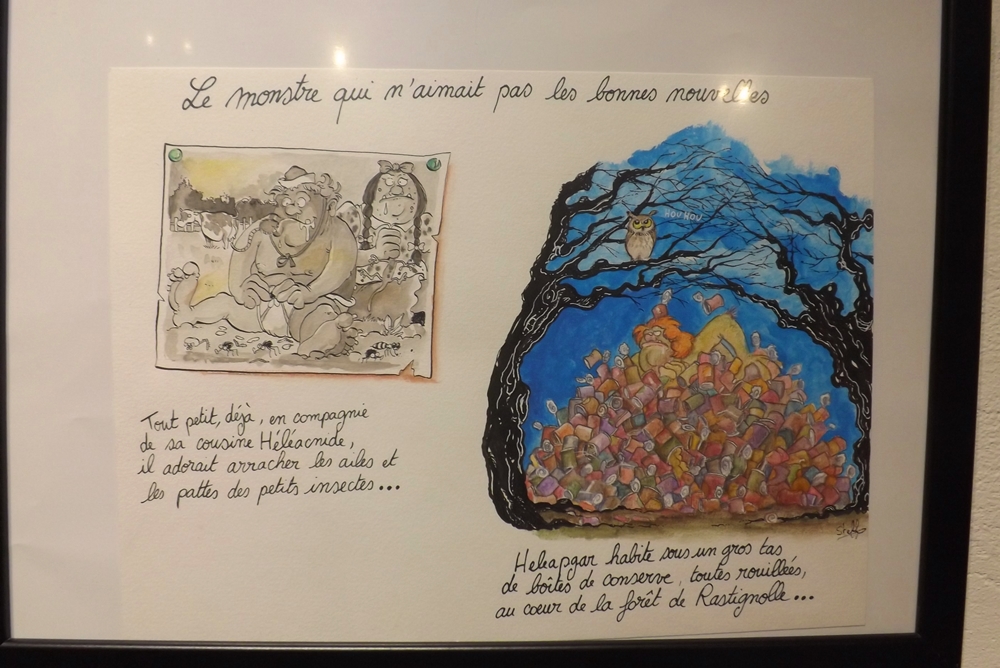 Le monstre qui n'aimait pas les bonnes nouvelles
HOU HOU
Tout petit, déjà, en compagnie
de sa cousine Héléacnude,
il adorait arracher les ailes et
les pattes des petits insectes...
Steffo
Heleapgar habite sous un gros tas
de boîtes de conserve, toutes rouillées,
au coeur de la forêt de Rastignolle...